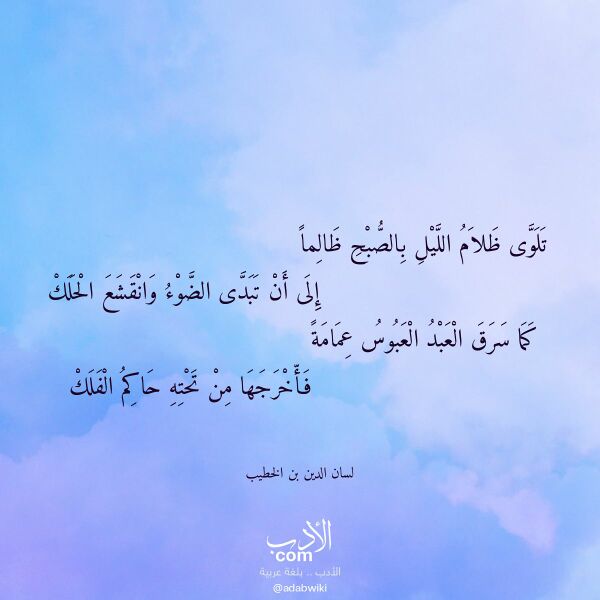 تَلَوَّى ظَلاَمُ اللَّيْلِ بِالصُّبْحِ ظَالِماً
إِلَى أَنْ تَبَدَّى الضَّوْءُ وَانْقَشَعَ الْحَلَكْ
كَمَا سَرَقَ الْعَبْدُ الْعَبُوسُ عِمَامَةً
فَأَخْرَجَهَا مِنْ تَحْتِهِ حَاكِمُ الْفَلَكْ
لسان الدين بن الخطيب
الأدب
com
الأدب .. بلغة عربية
@adabwiki